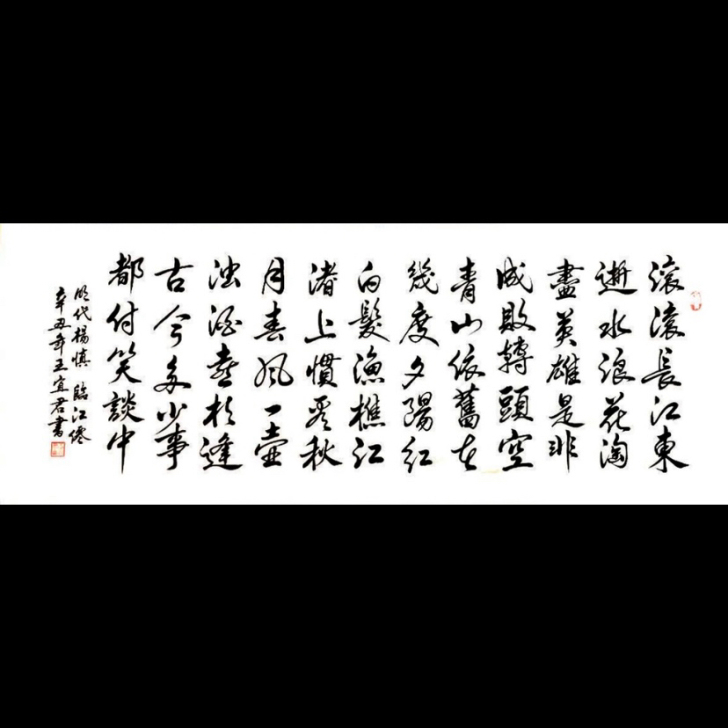 滚滚長江東
逝水浪花淘
盡英雄是非
成敗轉頭空
青山依舊在
幾度夕陽紅
白髮漁樵江
渚上慣看秋
月春風一壺
浊酒喜相逢
古今多少事
都付笑談中
明代楊慎 臨江仙
辛丑年王宜君書